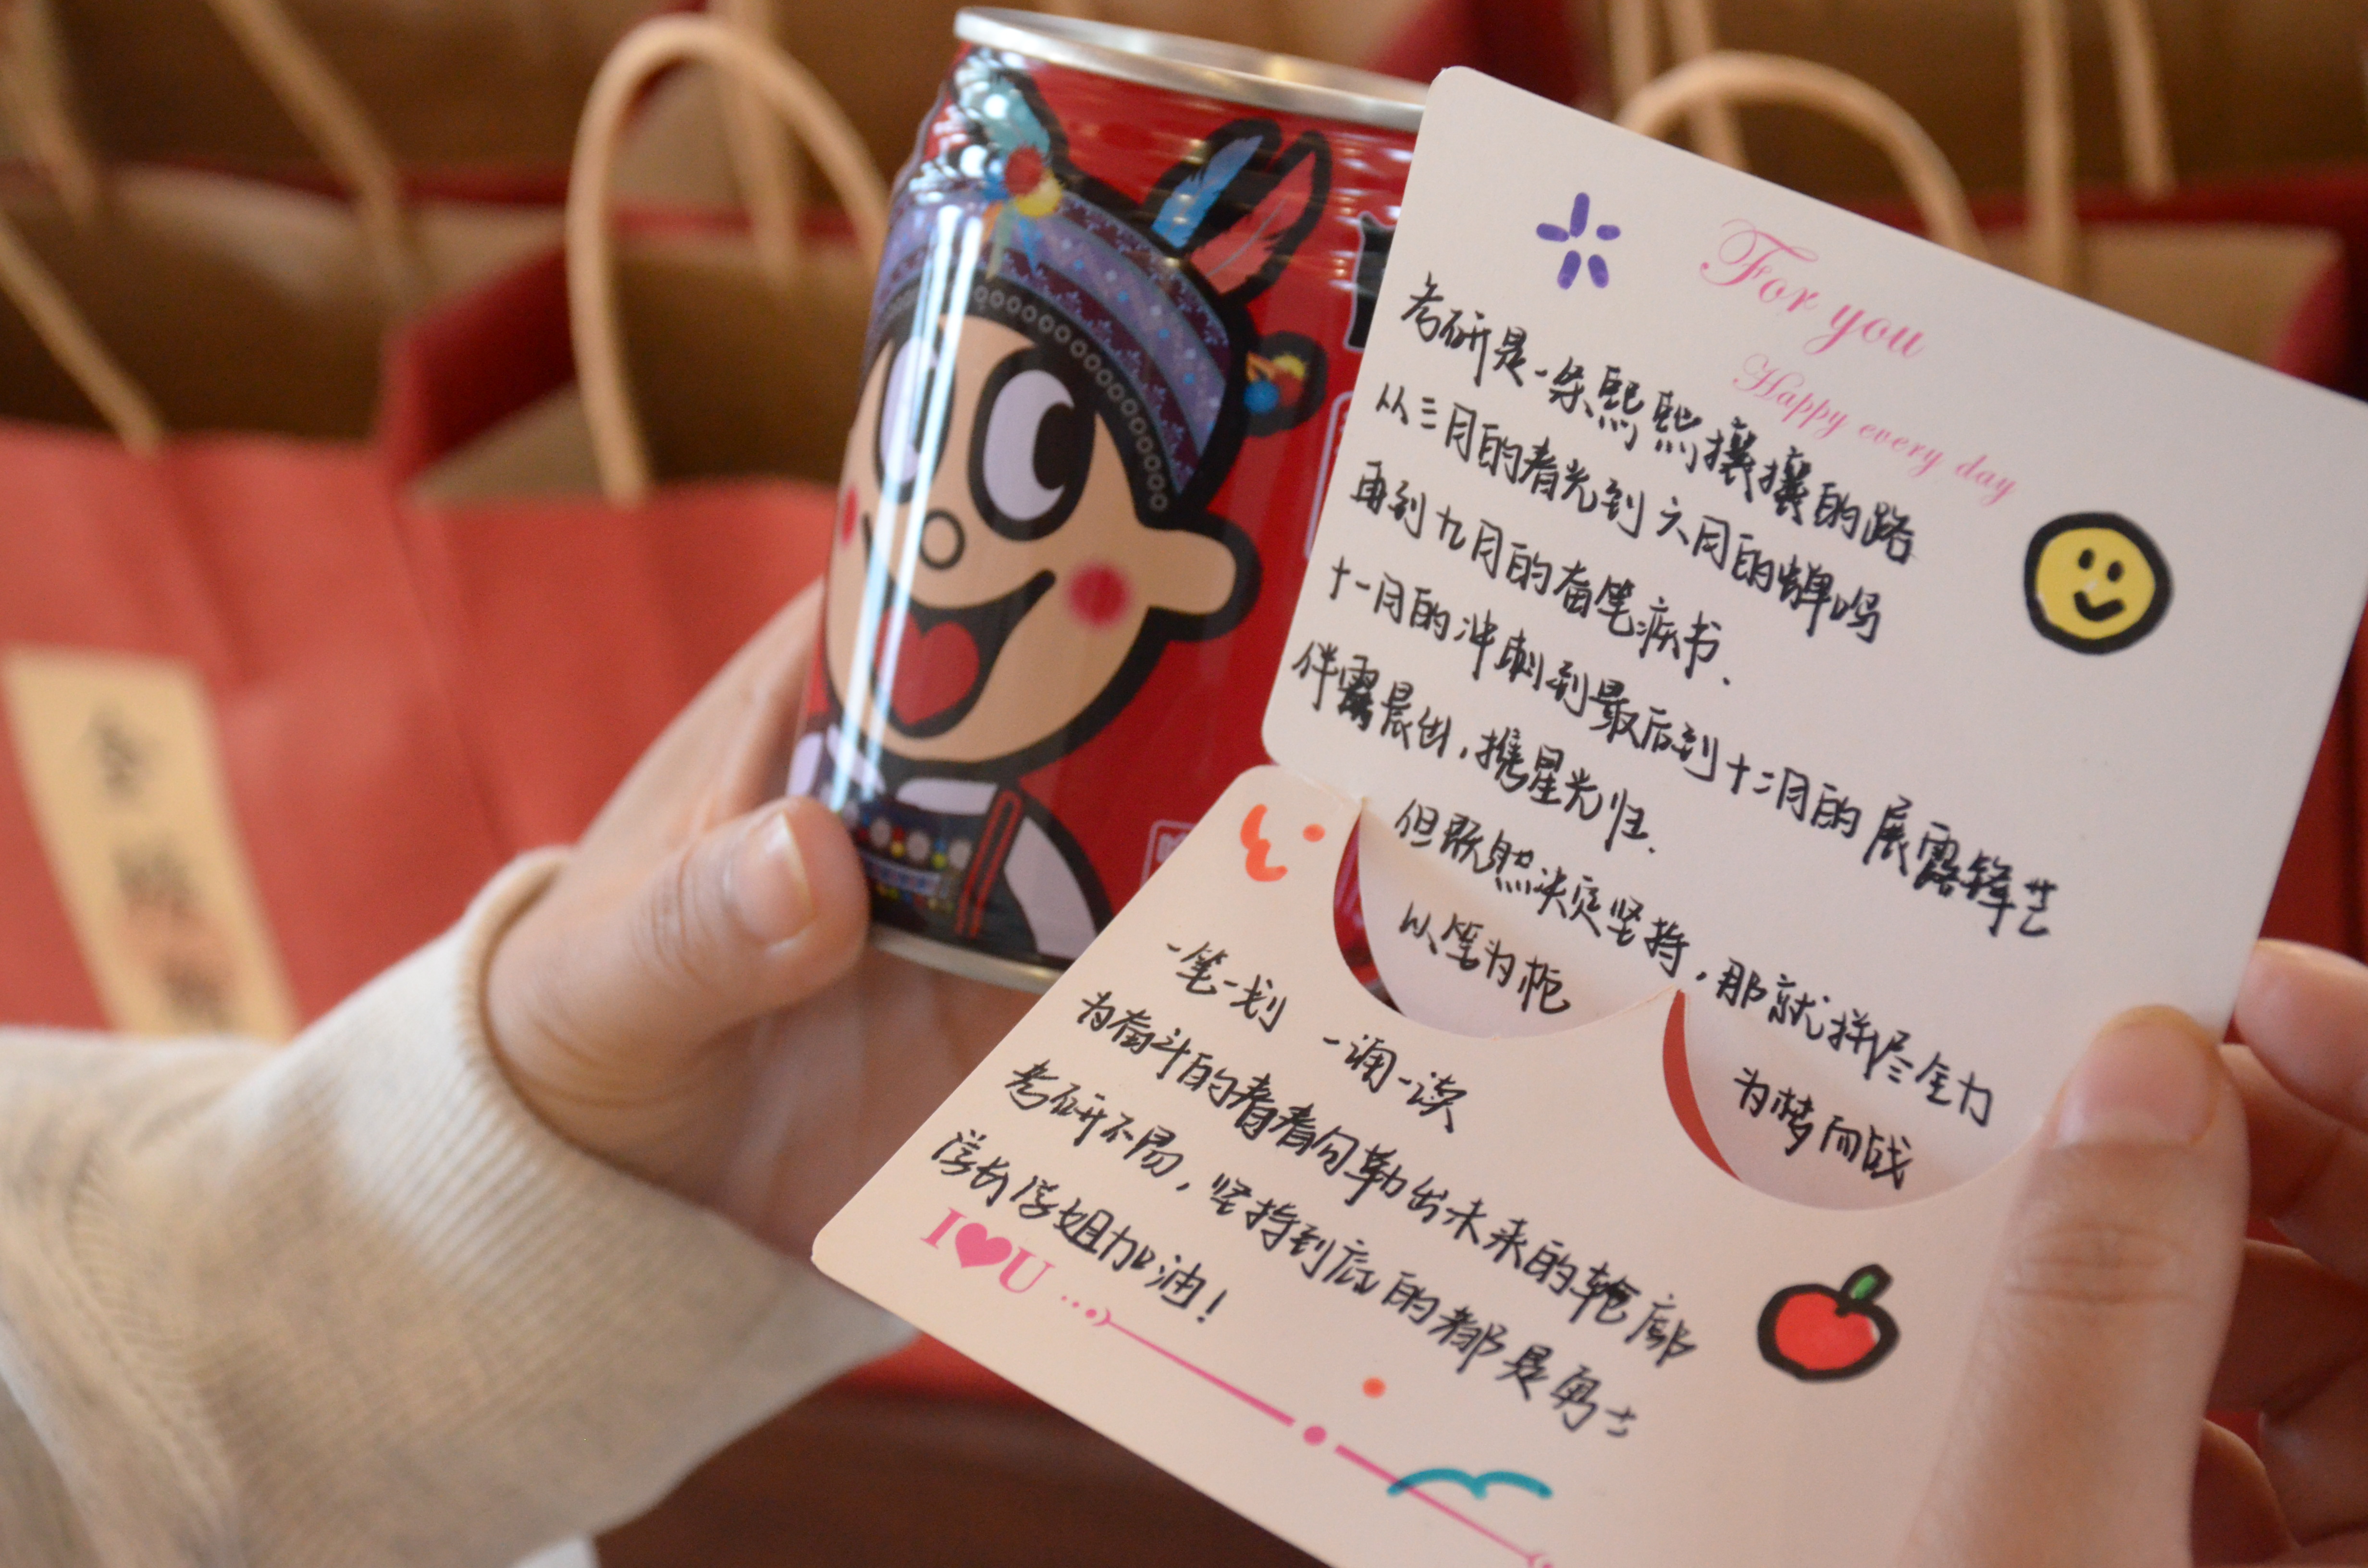 For you
Happy every day
考研是一条熙熙攘攘的路
从三月的春光到六月的蝉鸣
再到九月的奋笔疾书.
十一月的冲刺到最后到十二月的展露锋芒
伴露晨出，携星光归.
但既然决定坚持，那就拼尽全力
以笔为枪
为梦而战
一笔一划 一诵一读
为奋斗的青春勾勒出未来的轮廓
考研不易，坚持到底的都是勇士
学长学姐加油！
I U